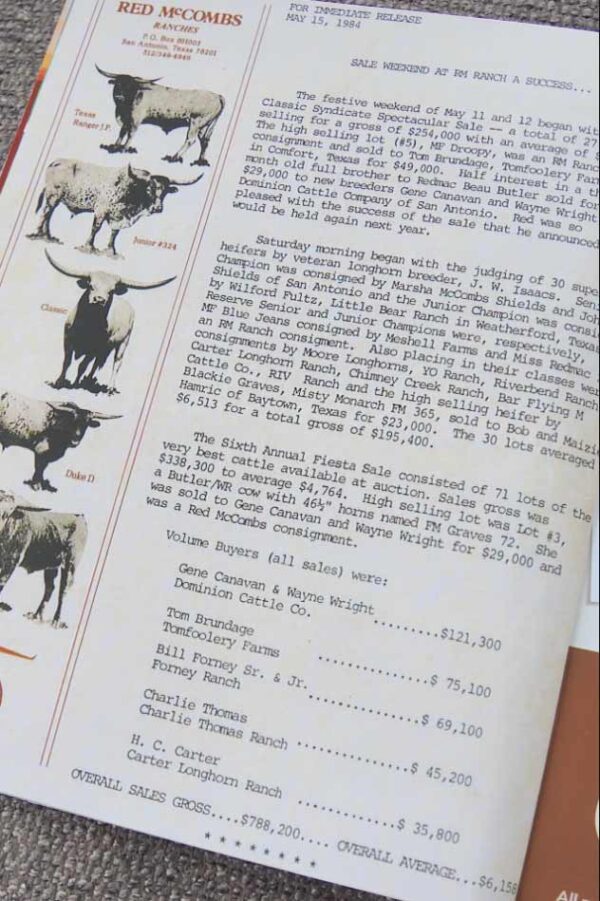 RED McCOMBS
RANCHES
P.O. Box
San Antonio, Texas 78201
FOR IMMEDIATE RELEASE
MAY 15, 1984
SALE WEEKEND AT RM RANCH A SUCCESS...
The festive weekend of May 11 and 12 began wit
Classic Syndicate Spectacular Sale -- a total of 27
selling for a gross of $254,000 with an average of $
The high selling lot (#5), MF Droopy, was an RM Ranc
consignment and sold to Tom Brundage, Tomfoolery Far
in Comfort, Texas for $49,000. Half interest in a th
month old full brother to Redmac Beau Butler sold for
$29,000 to new breeders Gene Canavan and Wayne Wright
Dominion Cattle Company of San Antonio. Red was so
pleased with the success of the sale that he announced
would be held again next year.
Saturday morning began with the judging of 30 supe
heifers by veteran longhorn breeder, J. W. Isaacs. Sen
Champion was consigned by Marsha McCombs Shields and Joh
Shields of San Antonio and the Junior Champion was consi
by Wilford Fultz, Little Bear Ranch in Weatherford, Texa
Reserve Senior and Junior Champions were, respectively,
MF Blue Jeans consigned by Meshell Farms and Miss Redmac
an RM Ranch consigment. Also placing in their classes wer
consignments by Moore Longhorns, YO Ranch, Riverbend Ranch
Carter Longhorn Ranch, Chimney Creek Ranch, Bar Flying M
Cattle Co., RIV Ranch and the high selling heifer by
Blackie Graves, Misty Monarch FM 365, sold to Bob and Maizi
Hamric of Baytown, Texas for $23,000. The 30 lots averaged
$6,513 for a total gross of $195,400.
The Sixth Annual Fiesta Sale consisted of 71 lots of the
very best cattle available at auction. Sales gross was
$338,300 to average $4,764. High selling lot was Lot #3,
a Butler/WR cow with 46½" horns named FM Graves 72. She
was sold to Gene Canavan and Wayne Wright for $29,000 and
was a Red McCombs consignment.
Volume Buyers (all sales) were:
Gene Canavan & Wayne Wright
Dominion Cattle Co. .........$121,300
Tom Brundage
Tomfoolery Farms ..............$ 75,100
Bill Forney Sr. & Jr.
Forney Ranch ..............$ 69,100
Charlie Thomas
Charlie Thomas Ranch ..............$ 45,200
H. C. Carter
Carter Longhorn Ranch ............$ 35,800
OVERALL SALES GROSS....$788,200.... OVERALL AVERAGE...$6,158
* * * * * * * *
Texas
Ranger J.P.
Junior #324
Classic
Duke D
All